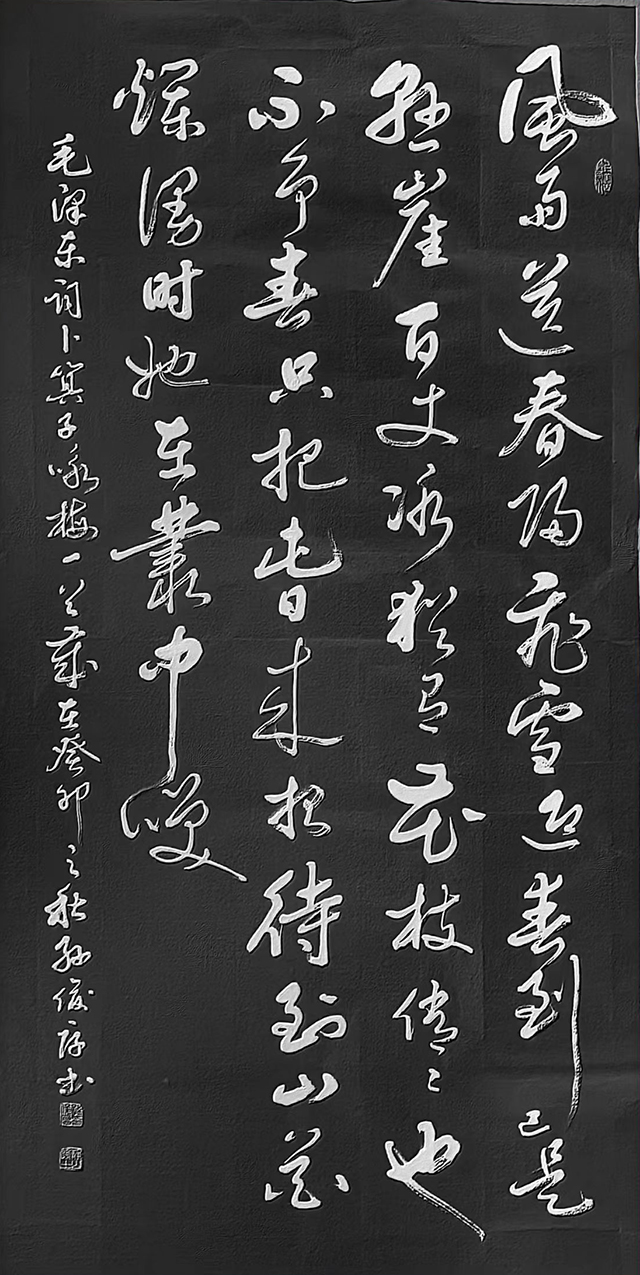 風雨送春归飛雪迎春到已是
懸崖百丈冰猶有花枝俏々也
不争春只把旾来报待到山花
爛漫時她在叢中咲
毛泽东词卜算子咏梅一首歲在癸卯之秋孙俊书